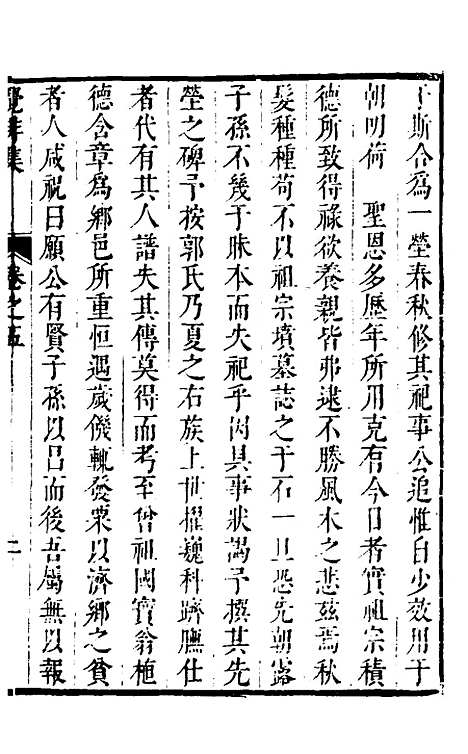 于斯合爲一塋春秋修其祀事公追惟自少效用于
朝明荷　聖恩多歷年所用克有今日者實祖宗積
德所致得祿欲養親皆弗逮不勝風木之悲茲焉秋
髮種種苟不以祖宗墳墓誌之于石一旦恐先朝露
子孫不幾于昧本而失祀乎因具事狀謁予撰其先
塋之碑予按郭氏乃夏之右族上世擢巍科躋膴仕
者代有其人譜失其傳莫得而考至曾祖國寶翁
德含章爲鄉邑所重恒遇歲饑輒發粟以濟鄉之貧
者人咸祝曰願公有賢子孫以吕而後吾屬無以報
集
卷之五
二